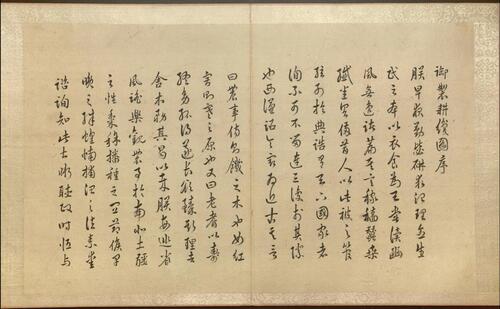 御製耕織圖序
朕早夜勤毖研求治理念生
民之本以衣食為天嘗讀豳
風無逸諸篇其言稼穡蠶桑
纖悉具備昔人以此被之管
弦列於典誥有天下國家者
洵不可不留連三復於其際
也西漢詔令最為近古其言
曰農事傷則饑之本也女紅
害則寒之原也又曰老耆以壽
終幼孤得遂長欲臻斯理者
舍本務其曷以哉朕每巡省
風謠樂觀農事於南北土疆
之性黍稌播種之宜節候早
晚之殊蝗蝻捕治之法素愛
諮詢知此甚晰聽政時恆與